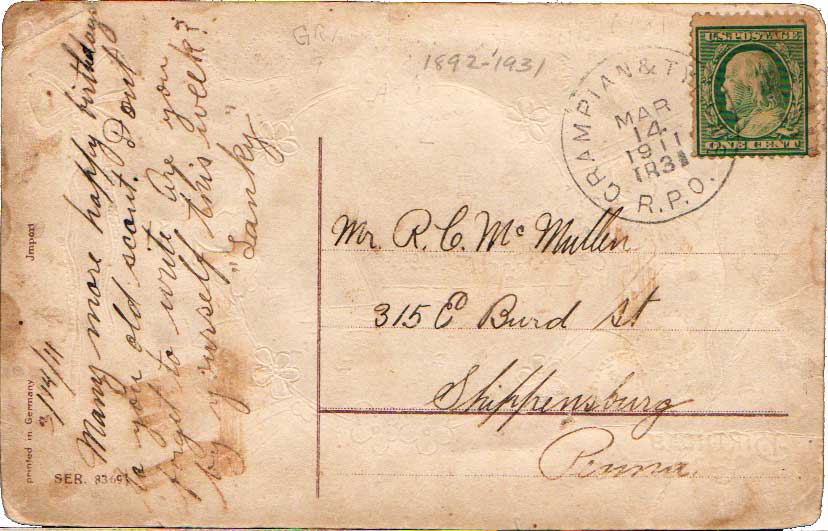 3/14/11
Many more happy birthdays
to you old scout. Don't
forget to write are you
by yourself this week?
"Lanky"
GRA
1892-1931
GRAMPIAN & T
MAR
14
1911
TR3
R.P.O.
U.S. POSTAGE
ONE CENT
Mr. R. C. Mc Mullen
315 E Burd St
Shippensburg
Penna.
printed in Germany Import
SER. 8369